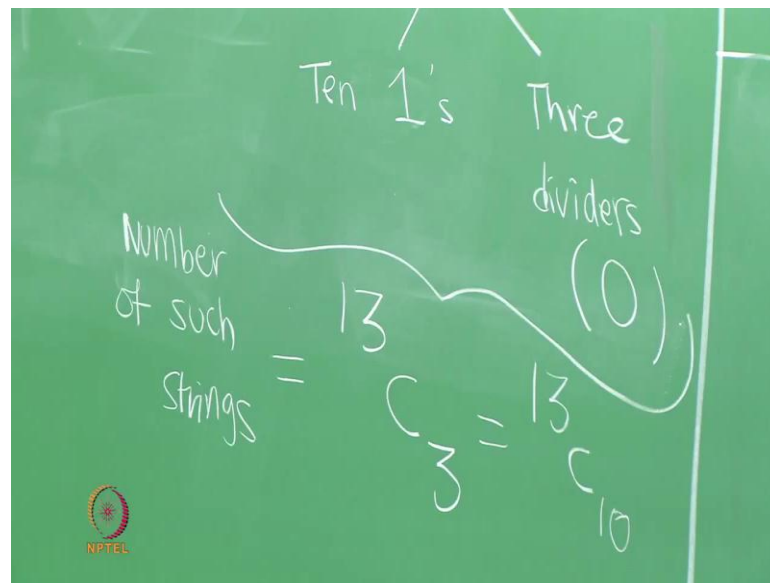 Ten 1's
Three
dividers
(0)
Number
of such
strings
= 13 C 3 = 13 C 10
NPTEL